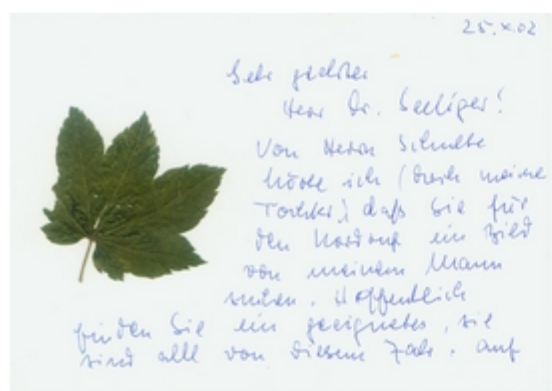 25.X.02
Sehr geehrter
Herr Dr. Seeliger!
Von Herrn Schulte
hörte ich (durch meine
Tochter) daß Sie für
den Nachruf ein Bild
von meinem Mann
suchen. Hoffentlich
finden Sie ein geeignetes, sie
sind alle von diesem Jahr. Auf